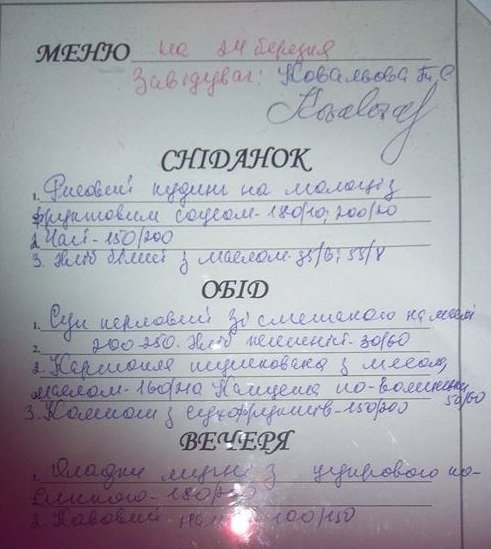 МЕНЮ на 24 березня
Завідувач: Ковальова Т. С.
СНІДАНОК
1. Рисовий пудинг на молоці з
фруктовим соусом - 180/10; 200/20
2. Чай - 150/200
3. Хліб білий з маслом - 35/6; 55/8
ОБІД
1. Суп перловий зі сметаною на
2. 200-250. Хліб 30/60
2. Картопля тушкована з мясом,
маслом - 160/210 Капуста по-волинськи 50/60
3. Компот з сухофруктів - 150/200
ВЕЧЕРЯ
1. Оладки з цукрового
- 180/200
2. Кавовий 200/250